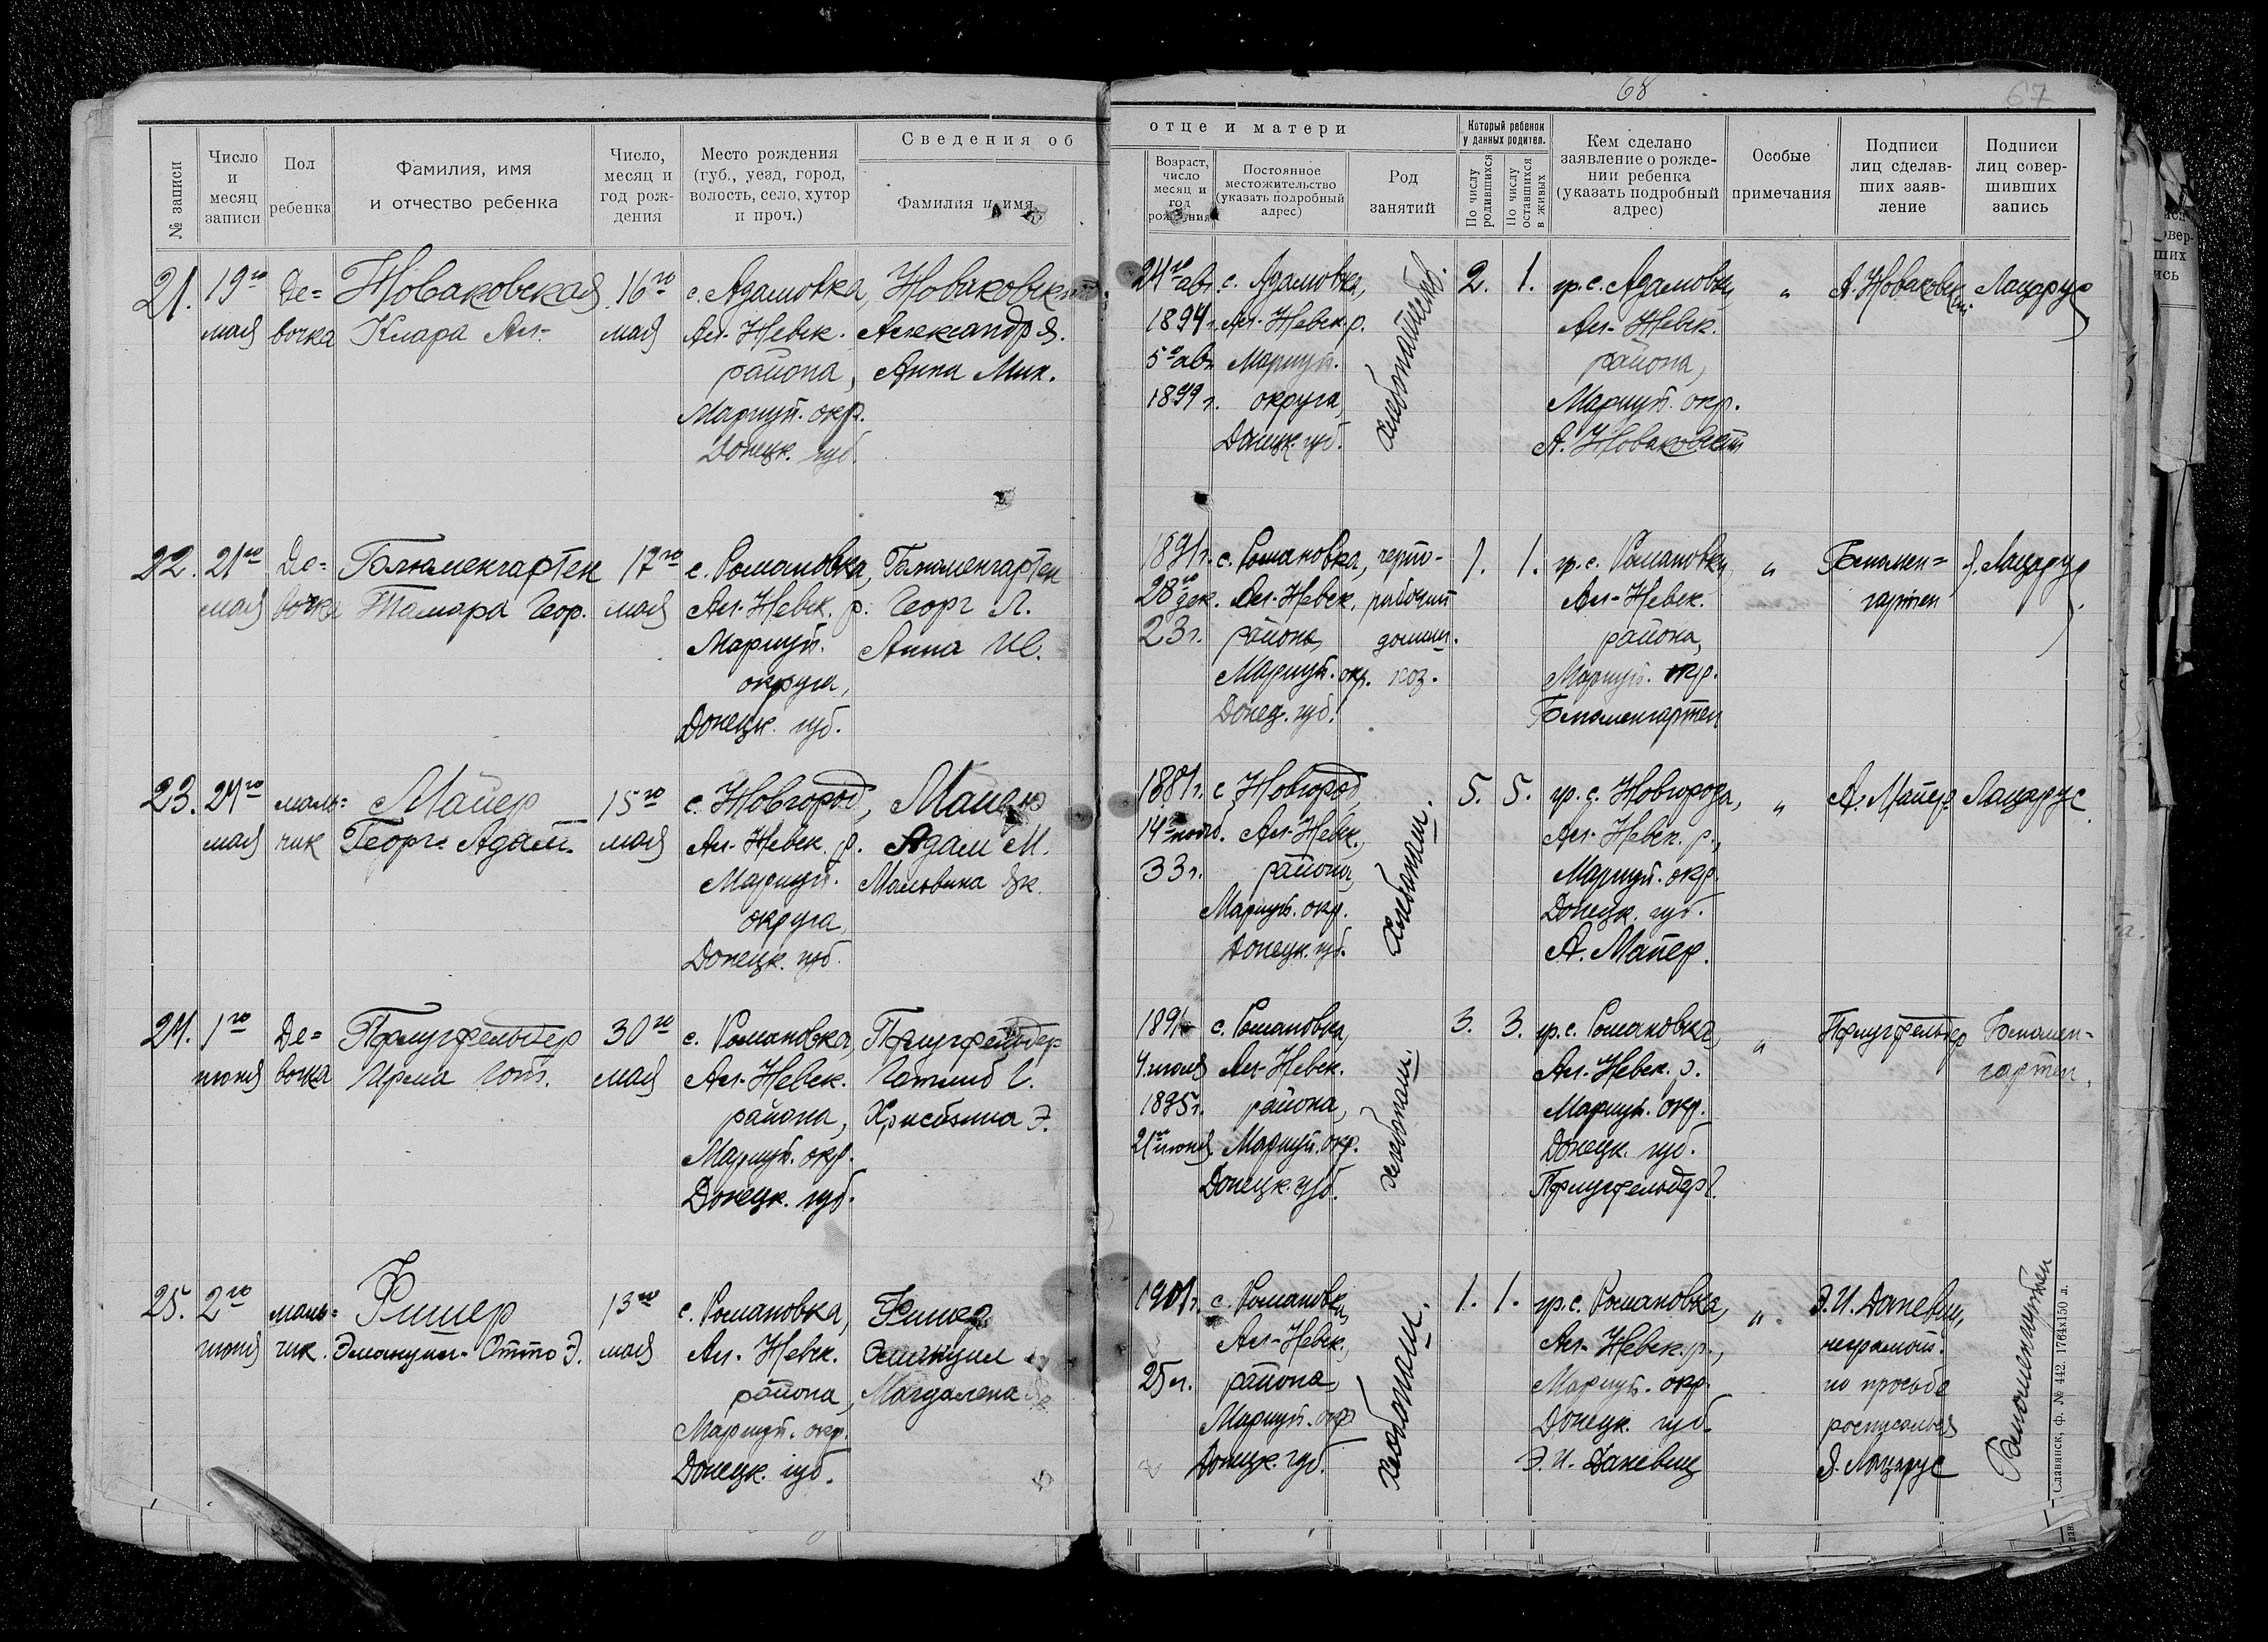 68
67
Сведения об
отце и матери
№ записи
Число и месяц записи
Пол ребенка
Фамилия, имя и отчество ребенка
Число, месяц и год рождения
Место рождения (губ., уезд, город, волость, село, хутор и проч.)
Фамилия и имя
Возраст, число месяц и год рождения
Постоянное местожительство (указать подробный адрес)
Род занятий
Который ребенок у данных родител.
По числу родившихся
По числу оставшихся в живых
Кем сделано заявление о рождении ребенка (указать подробный адрес)
Особые примечания
Подписи лиц сделавших заявление
Подписи лиц совершивших запись
21. 19го Де= Новаковская 16го с. Адамовка, Новаковский
мая вочка Клара Ал- мая Ал-Невск. Александр Я.
района, Анна Мих.
Мариуп. окр.
Донецк. губ.
24го авг. с. Адамовка, хлебопашеств. 2. 1. гр. с. Адамовки, „ А. Новаковск. Лацарус
1894г. Ал-Невск. р. Ал-Невск.
5го авг. Мариуп. района,
1899г. округа, Мариуп. окр.
Донецк. губ. А. Новаковский
22. 21го Де= Блюменгартен 17го с. Романовка, Блюменгартен
мая вочка Тамара Геор. мая Ал-Невск. р. Георг Л.
Мариуп. Анна И.
округа,
Донецк. губ.
1891г. с. Романовка, черно- 1. 1. гр. с. Романовки, „ Блюмен= Я. Лацарус
28го дек. Ал-Невск. рабочий Ал-Невск. гартен
23г. района, домаш. района,
Мариуп. окр. хоз. Мариуп. окр.
Донец. губ. Блюменгартен
23. 24го маль= Майер 15го с. Новгород, Майер
мая чик Георг Адам. мая Ал-Невск. р. Адам М.
Мариуп. Мальвина Як.
округа,
Донецк. губ.
1881г. с. Новгород, хлебопаш. 5. 5. гр. с. Новгорода, „ А. Майер Лацарус
14го нояб. Ал-Невск. Ал-Невск. р.,
33г. района, Мариуп. окр.
Мариуп. окр. Донецк. губ.
Донецк. губ. А. Майер.
24. 1го Де= Пфлугфельдер 30го с. Романовка, Пфлугфельдер
июня вочка Ирма Гот. мая Ал-Невск. Готлиб Г.
района, Христина Э.
Мариуп. окр.
Донецк. губ.
с. Романовка, хлебопаш. 3. 3. гр. с. Романовка, „ Пфлугфельдер Блюмен-
Ал-Невск. Ал-Невск. р. гартен.
1895г. района, Мариуп. окр.
21го июня Мариуп. окр. Донецк. губ.
Донецк. губ. Пфлугфельдер Г.
25. 2го маль= Фишер 13го с. Романовка, Фишер
июня чик. Эмануил-Отто Э. мая Ал-Невск. Эмануил
района, Магдалена
Мариуп. окр.
Донецк. губ.
1901г. с. Романовка, хлебопаш. 1. 1. гр. с. Романовка, „ Э. И. Даневиц, Блюменгартен
Ал-Невск., Ал-Невск. р., неграмот.
25л. района, Мариуп. окр. по просьбе
Мариуп. окр. Донецк. губ. росписался
Донецк. губ. Э. И. Даневиц Я. Лацарус
Славянск, ф. № 442. 1764х150 л.